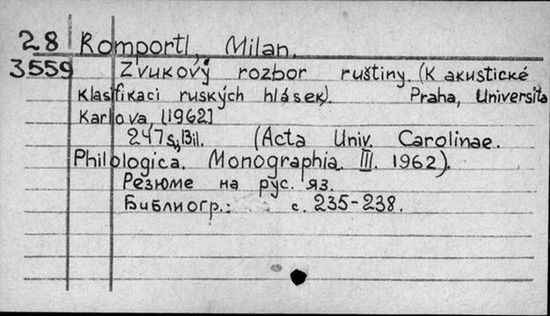 28 Romportl, Milan.
3559 Zvukový rozbor ruštiny. (K akustické
klasifikaci ruských hlásek). Praha, Universita
Karlova [1962]
247 s., Bil. (Acta Univ. Carolinae.
Philologica. Monographia. III. 1962).
Резюме на рус. яз.
Библиогр.: с. 235-238.